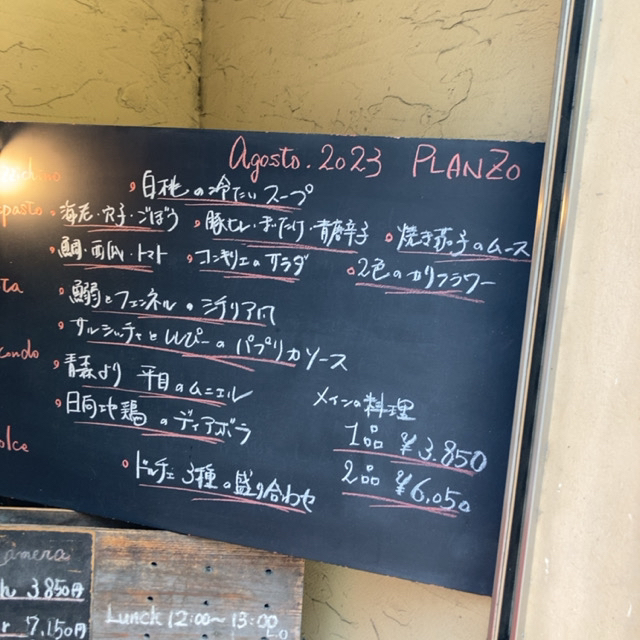 Agosto. 2023 PLANZO
・白桃の冷たいスープ
pasto ・海老・穴子・ごぼう ・豚ヒレ・きのこ・青唐辛子 ・焼き茄子のムース
・鯛・西瓜・トマト ・コンキリエのサラダ ・2色のカリフラワー
ta ・鰯とフェンネルのシチリア风
・サルシッチャとピーのパプリカソース
condo ・青森より 平目のムニエル
・日向地鶏のディアボラ
メインの料理
1品 ¥3.850
2品 ¥6.050
olce ・ドルチェ 3種の盛り合わせ
amera
h 3,850円
r 7,150円
Lunch 12:00~13:00 L.O